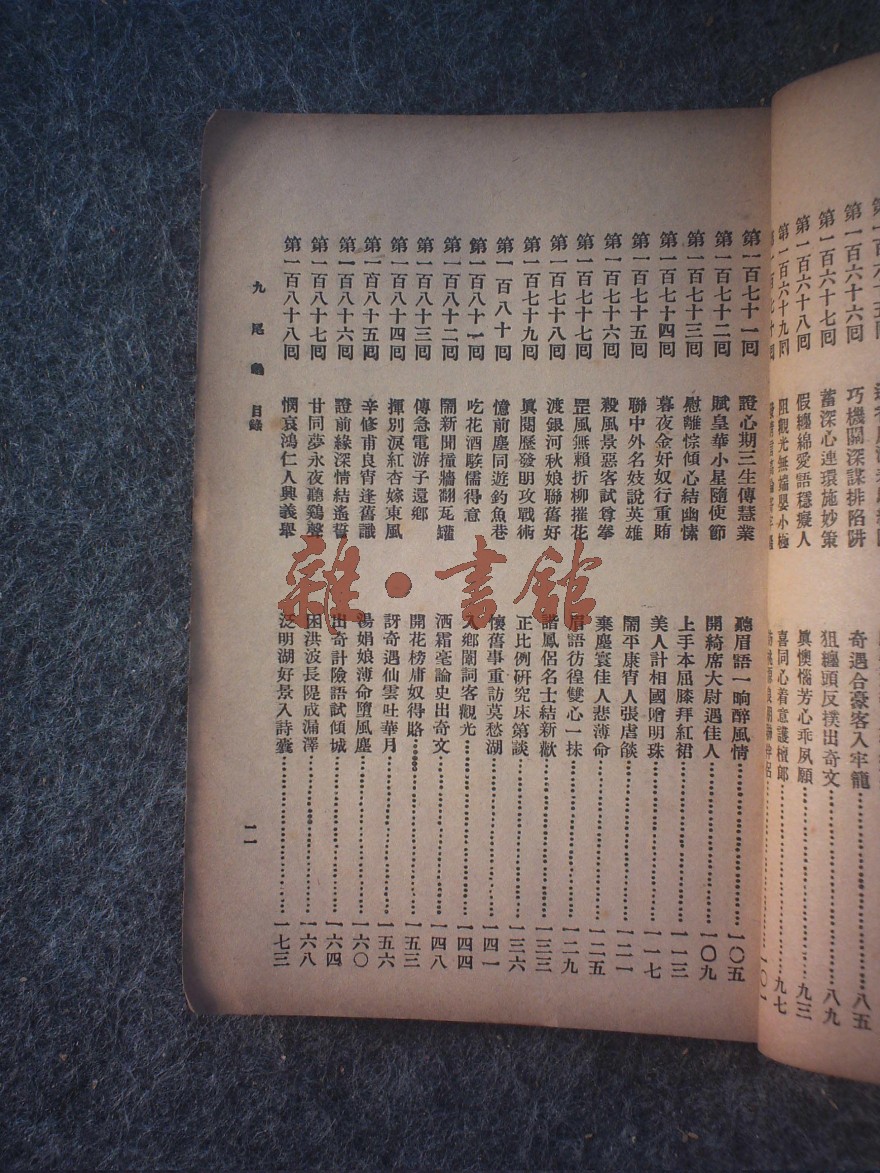 第一百六十六回 巧機關深謀排陷阱 奇遇合豪客入牢籠 八五
第一百六十七回 蓄深心連環施妙策 狙纏頭反撲出奇文 八九
第一百六十八回 假纏綿愛語穩癡人 眞懊惱芳心乖夙願 九三
第一百六十九回 阻觀光無端嬰小極 喜同心着意護檀郎 九七
第一百七十回 一〇一
第一百七十一回 證心期三生傳慧業 聽眉語一晌醉風情 一〇五
第一百七十二回 賦皇華小星隨使節 開綺席大尉遇佳人 一〇九
第一百七十三回 慰離悰傾心結幽愫 上手本屈膝拜紅裙 一一三
第一百七十四回 暮夜金奸奴行重賄 美人計相國贈明珠 一一七
第一百七十五回 聯中外名妓說英雄 鬧平康宵人張虐燄 一二一
第一百七十六回 殺風景惡客試尊拳 棄塵寰佳人悲薄命 一二五
第一百七十七回 罡風無賴折柳摧花 眉語彷徨雙心一抹 一二九
第一百七十八回 渡銀河秋娘聯舊好 諧鳳侶名士結新歡 一三三
第一百七十九回 眞閱歷發明攻戰術 正比例研究床第談 一三六
第一百八十回 憶前塵同遊釣魚巷 懷舊事重訪莫愁湖 一四一
第一百八十一回 吃花酒騃儒得意 入鄉闈詞客觀光 一四四
第一百八十二回 鬧新聞撞牆翻瓦罐 洒霜毫論史出奇文 一四八
第一百八十三回 傳急電游子還鄉 開花榜庸奴得賂 一五三
第一百八十四回 揮別淚紅杏嫁東風 訝奇遇仙雲吐華月 一五六
第一百八十五回 辛修甫良宵逢舊識 湯娟娘薄命墮風塵 一六〇
第一百八十六回 證前緣深情結遙誓 出奇計險語試傾城 一六四
第一百八十七回 甘同夢永夜聽鷄聲 困洪波長隄成漏澤 一六八
第一百八十八回 憫哀鴻仁人興義舉 泛明湖好景入詩囊 一七三
九尾龜 目錄
一一
雜·書館